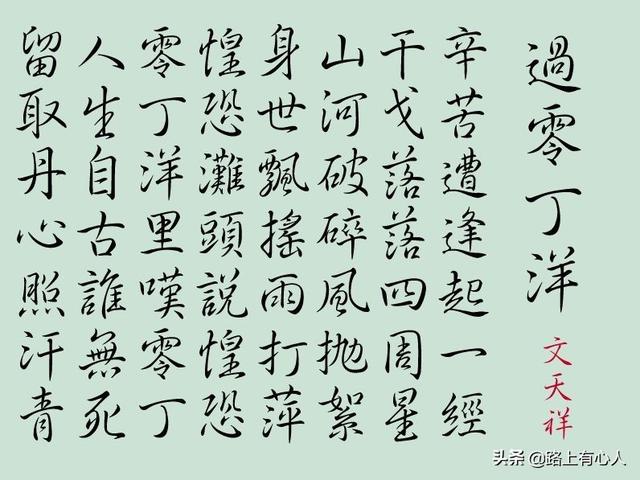 過零丁洋
文天祥
辛苦遭逢起一經
干戈落落四周星
山河破碎風拋絮
身世飄搖雨打萍
惶恐灘頭說惶恐
零丁洋里嘆零丁
人生自古誰無死
留取丹心照汗青
头条 @路上有心人